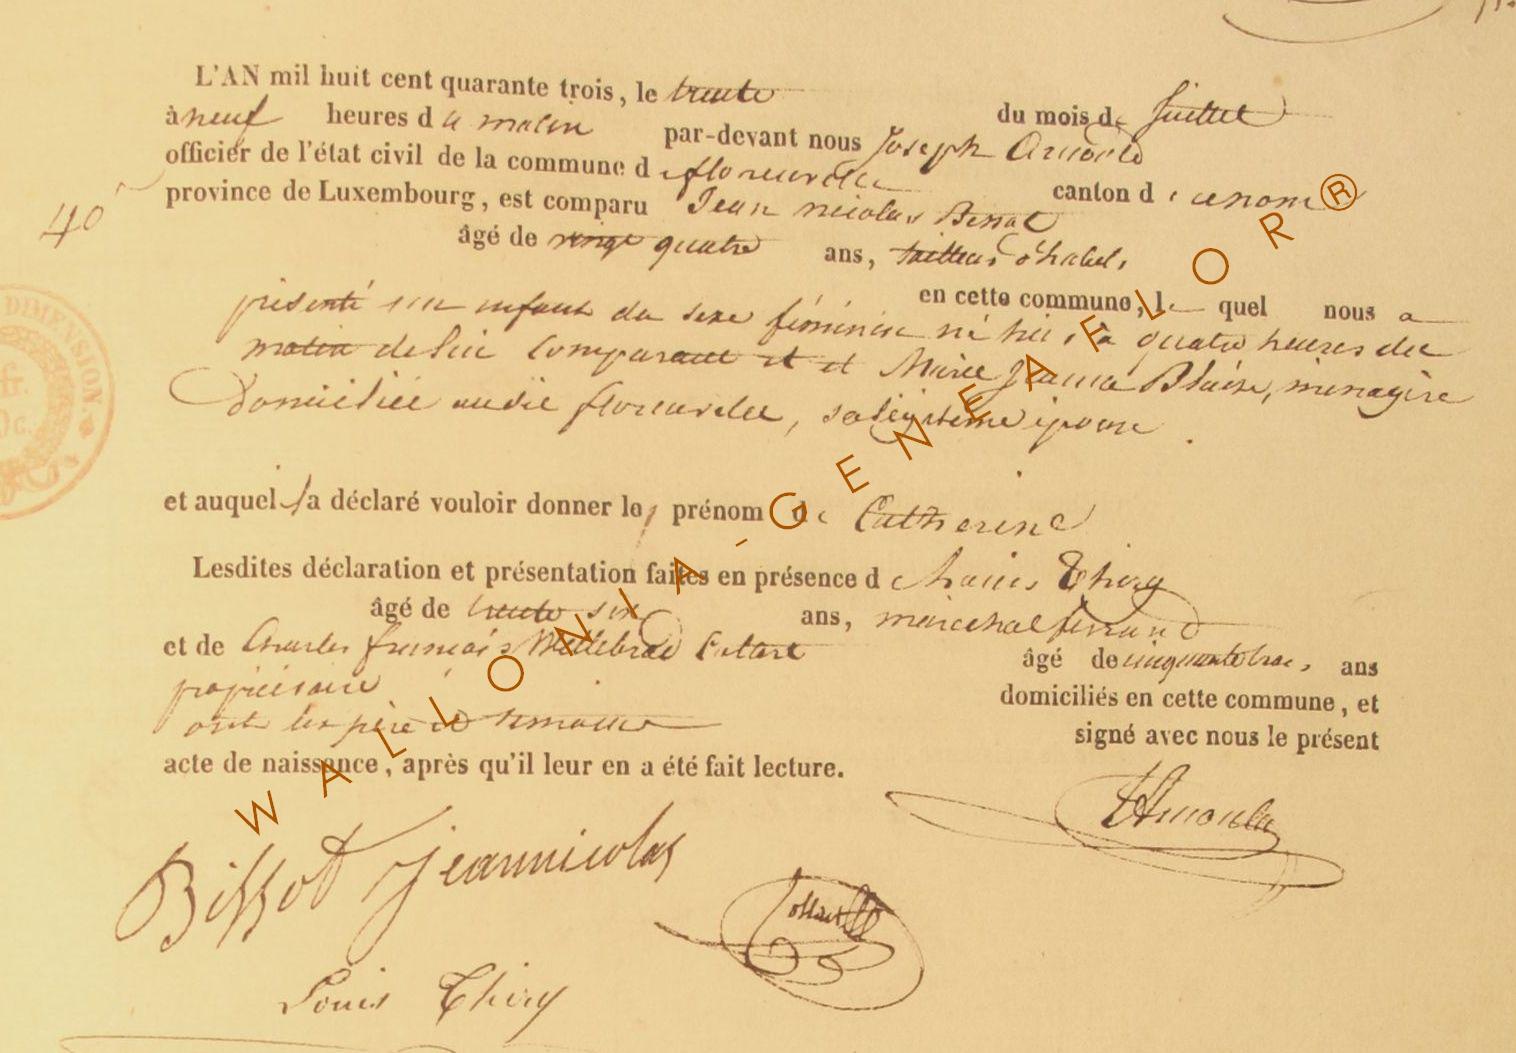 L'AN mil huit cent quarante trois, le trente du mois de Juillet
à neuf heures du matin par-devant nous Joseph Arnould
officier de l'état civil de la commune de florenville canton d
province de Luxembourg, est comparu Jean nicolas Bissot
âgé de vingt quatre ans, tailleur d'habits
en cette commune, le quel nous a
présenté un enfant du sexe féminin né hier à quatre heures du
matin de lui comparant et de Marie Jeanne Blaise, ménagère
domiciliée audit florenville, sa légitime épouse
et auquel il a déclaré vouloir donner le prénom de Catherine
Lesdites déclaration et présentation faites en présence de Louis Thiry
âgé de trente six ans, maréchal ferrand
et de Charles françois âgé de cinquante trois ans
propriétaire domiciliés en cette commune, et
ont les père et témoins signé avec nous le présent
acte de naissance, après qu'il leur en a été fait lecture.
40
DIMENSION.
JArnould
Bissot jeannicolas
Louis Thiry
WALLONIA-GENEAFLOR®